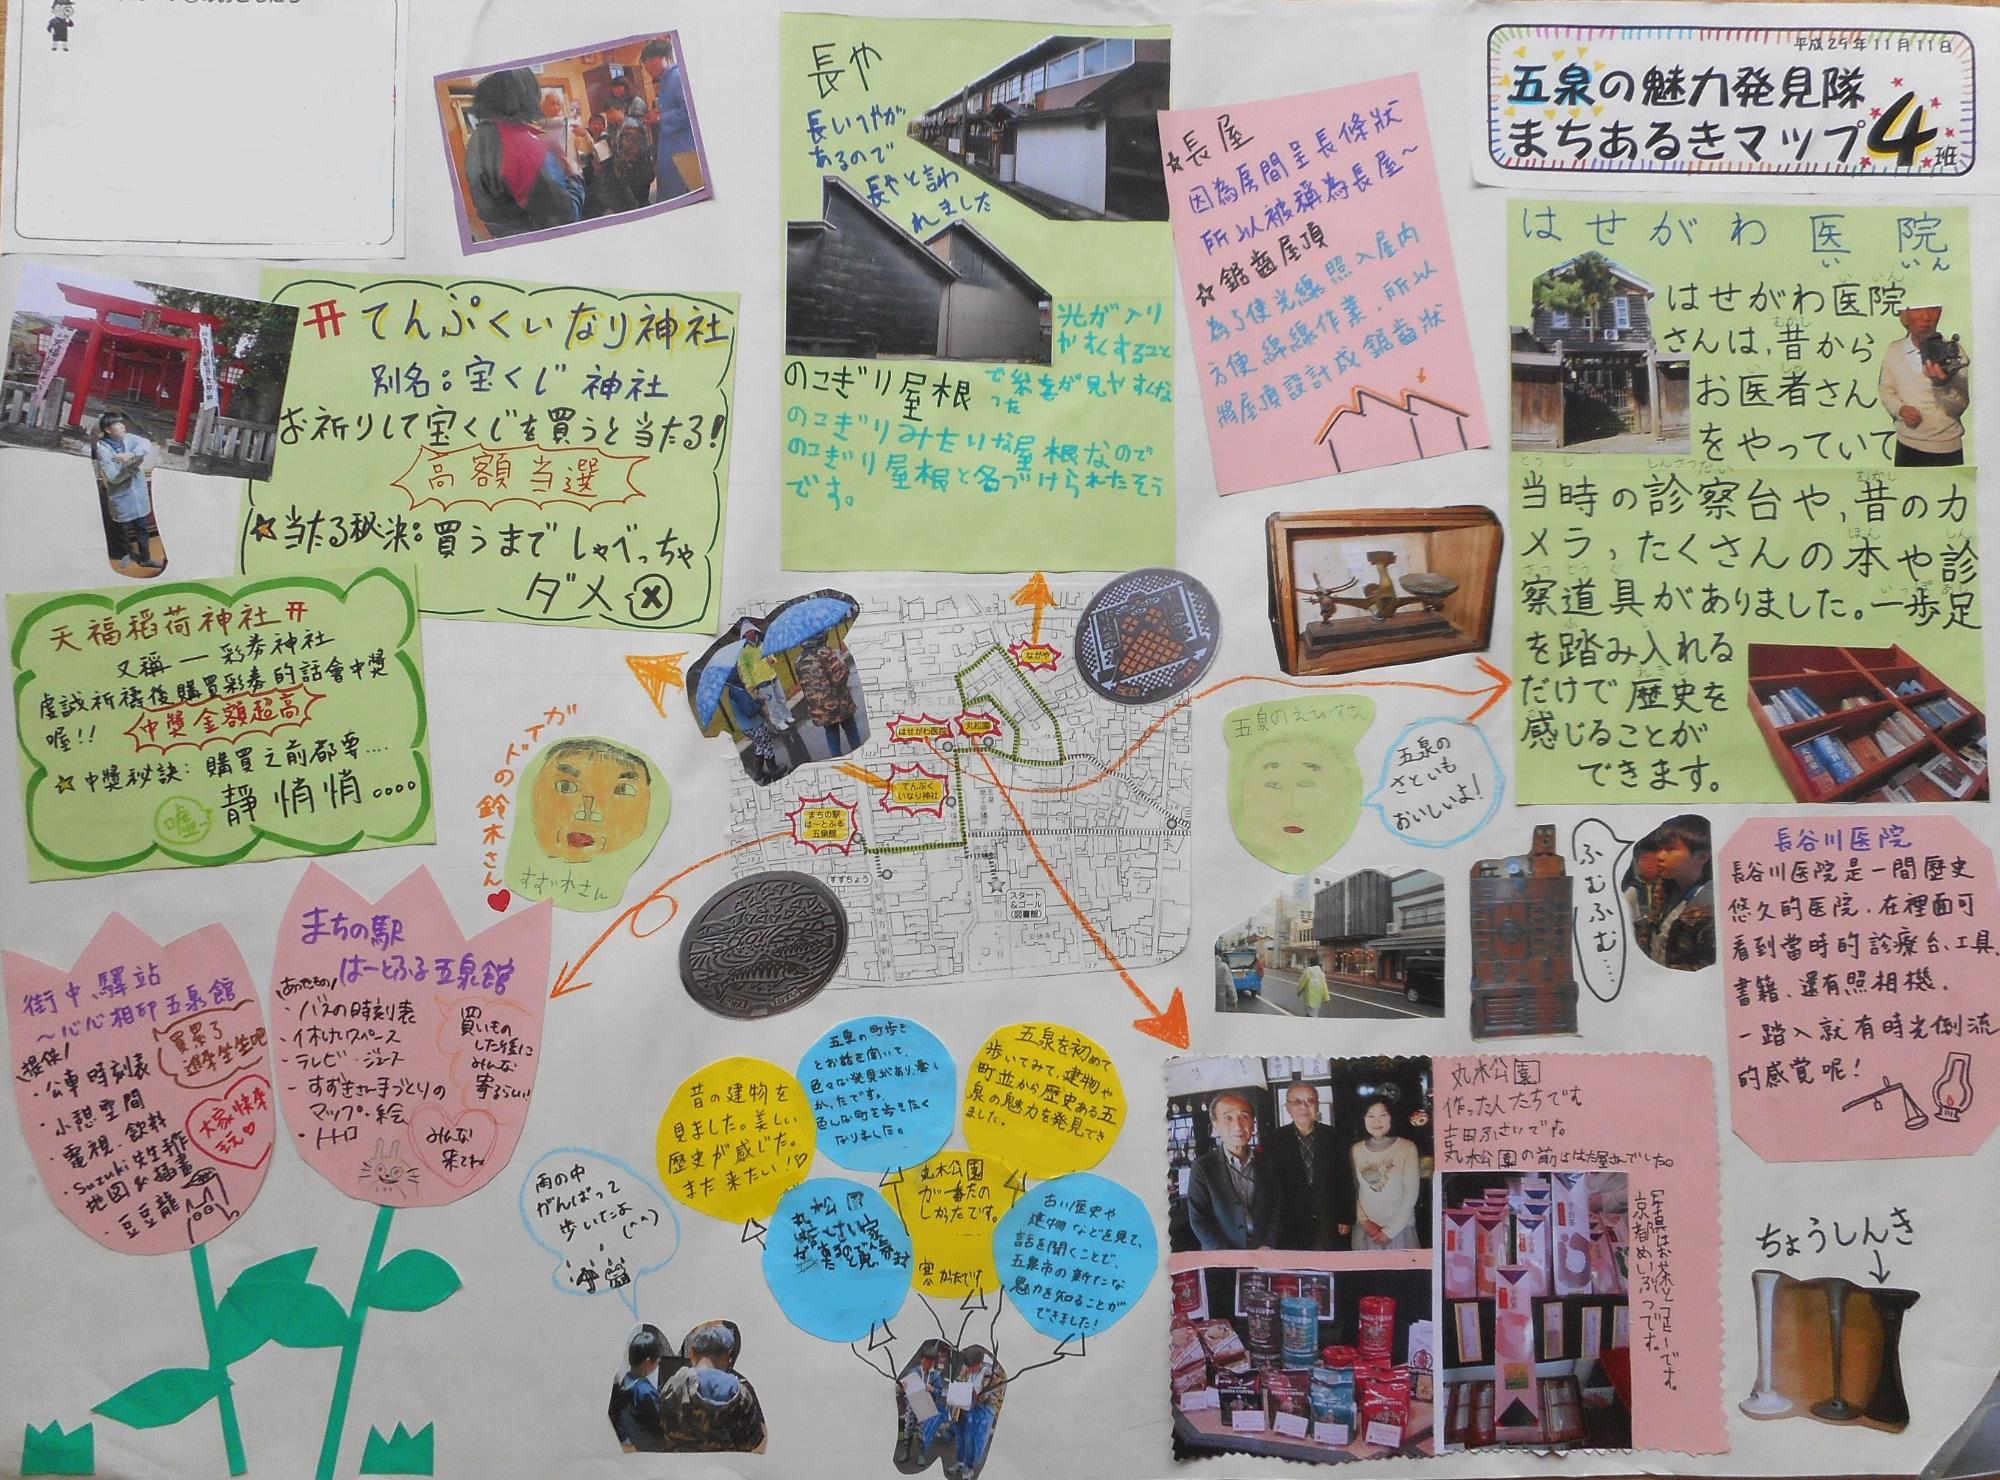 平成29年11月11日
五泉の魅力発見隊
まちあるきマップ4班
長や
長いへやが
あるので
長やと言わ
れました
光が入り
やすくすること
のこぎり屋根
のこぎりみたいな屋根なので
のこぎり屋根と名づけられたそう
です。
☆長屋
因為房間呈長條狀
所以被稱為長屋~
☆鋸齒屋頂
為了使光線照入屋內
方便綿線作業,所以
將屋頂設計成鋸齒狀
はせがわ医院
いいん
はせがわ医院
さんは,昔から
お医者さん
をやっていて
当時の診察台や,昔のカ
メラ,たくさんの本や診
察道具がありました。一歩足
を踏み入れる
だけで歴史を
感じることが
できます。
てんぷくいなり神社
別名:宝くじ神社
お祈りして宝くじを買うと当たる!
高額当選
☆当たる秘決:買うまでしゃべっちゃ
ダメ
天福稻荷神社
又稱一彩券神社
虔誠祈禱後購買彩券的話會中獎
喔!!
中獎金額超高
☆中獎秘訣:購買之前都要....
靜悄悄。。。。
噓
ガイドの鈴木さん
すずきさん
ながや
はせがわ医院
丸松園
てんぷく
いなり神社
まちの駅
は~とふる
五泉館
すずちょう
スタート
&ゴール
(図書館)
五泉のえびすさん
五泉の
さといも
おいしいよ!
ふむふむ…
長谷川医院
長谷川医院是一間歷史
悠久的医院,在裡面可
看到當時的診療台、工具、
書籍,還有照相機,
一踏入就有時光倒流
的感覚呢!
街中驛站
~心心相印五泉館
提供
・公車時刻表
・小憩空間
・電視、飲料
・Suzuki先生手作
地図&插畫
・豆豆龍
買累了
進來坐坐吧
大家快來
玩♡
まちの駅
はーとふる五泉館
あったもの
・バスの時刻表
・休けいスペース
・テレビ・ジュース
・すずきさん手づくりの
マップ・絵
・トトロ
買いもの
した後に
みんな
寄るらしい!
みんな
来てね
昔の建物を
見ました。美しい
歴史が感じた。
また来たい!♡
五泉の町歩き
とお話を聞いて、
色々な発見があり、楽し
かったです。
色んな町を歩きたく
なりました。
五泉を初めて
歩いてみて、建物や
町並から歴史ある五
泉の魅力を発見でき
ました。
丸松園
丸木公園
が一番たの
しかったです。
古い歴史や
建物などを見て、
話を聞くことで、
五泉市の新たな
魅力を知ることが
できました!
雨の中
がんばって
歩いたよ
(^^)
丸木公園
作った人たちです
吉田ふさいです。
ちょうしんき